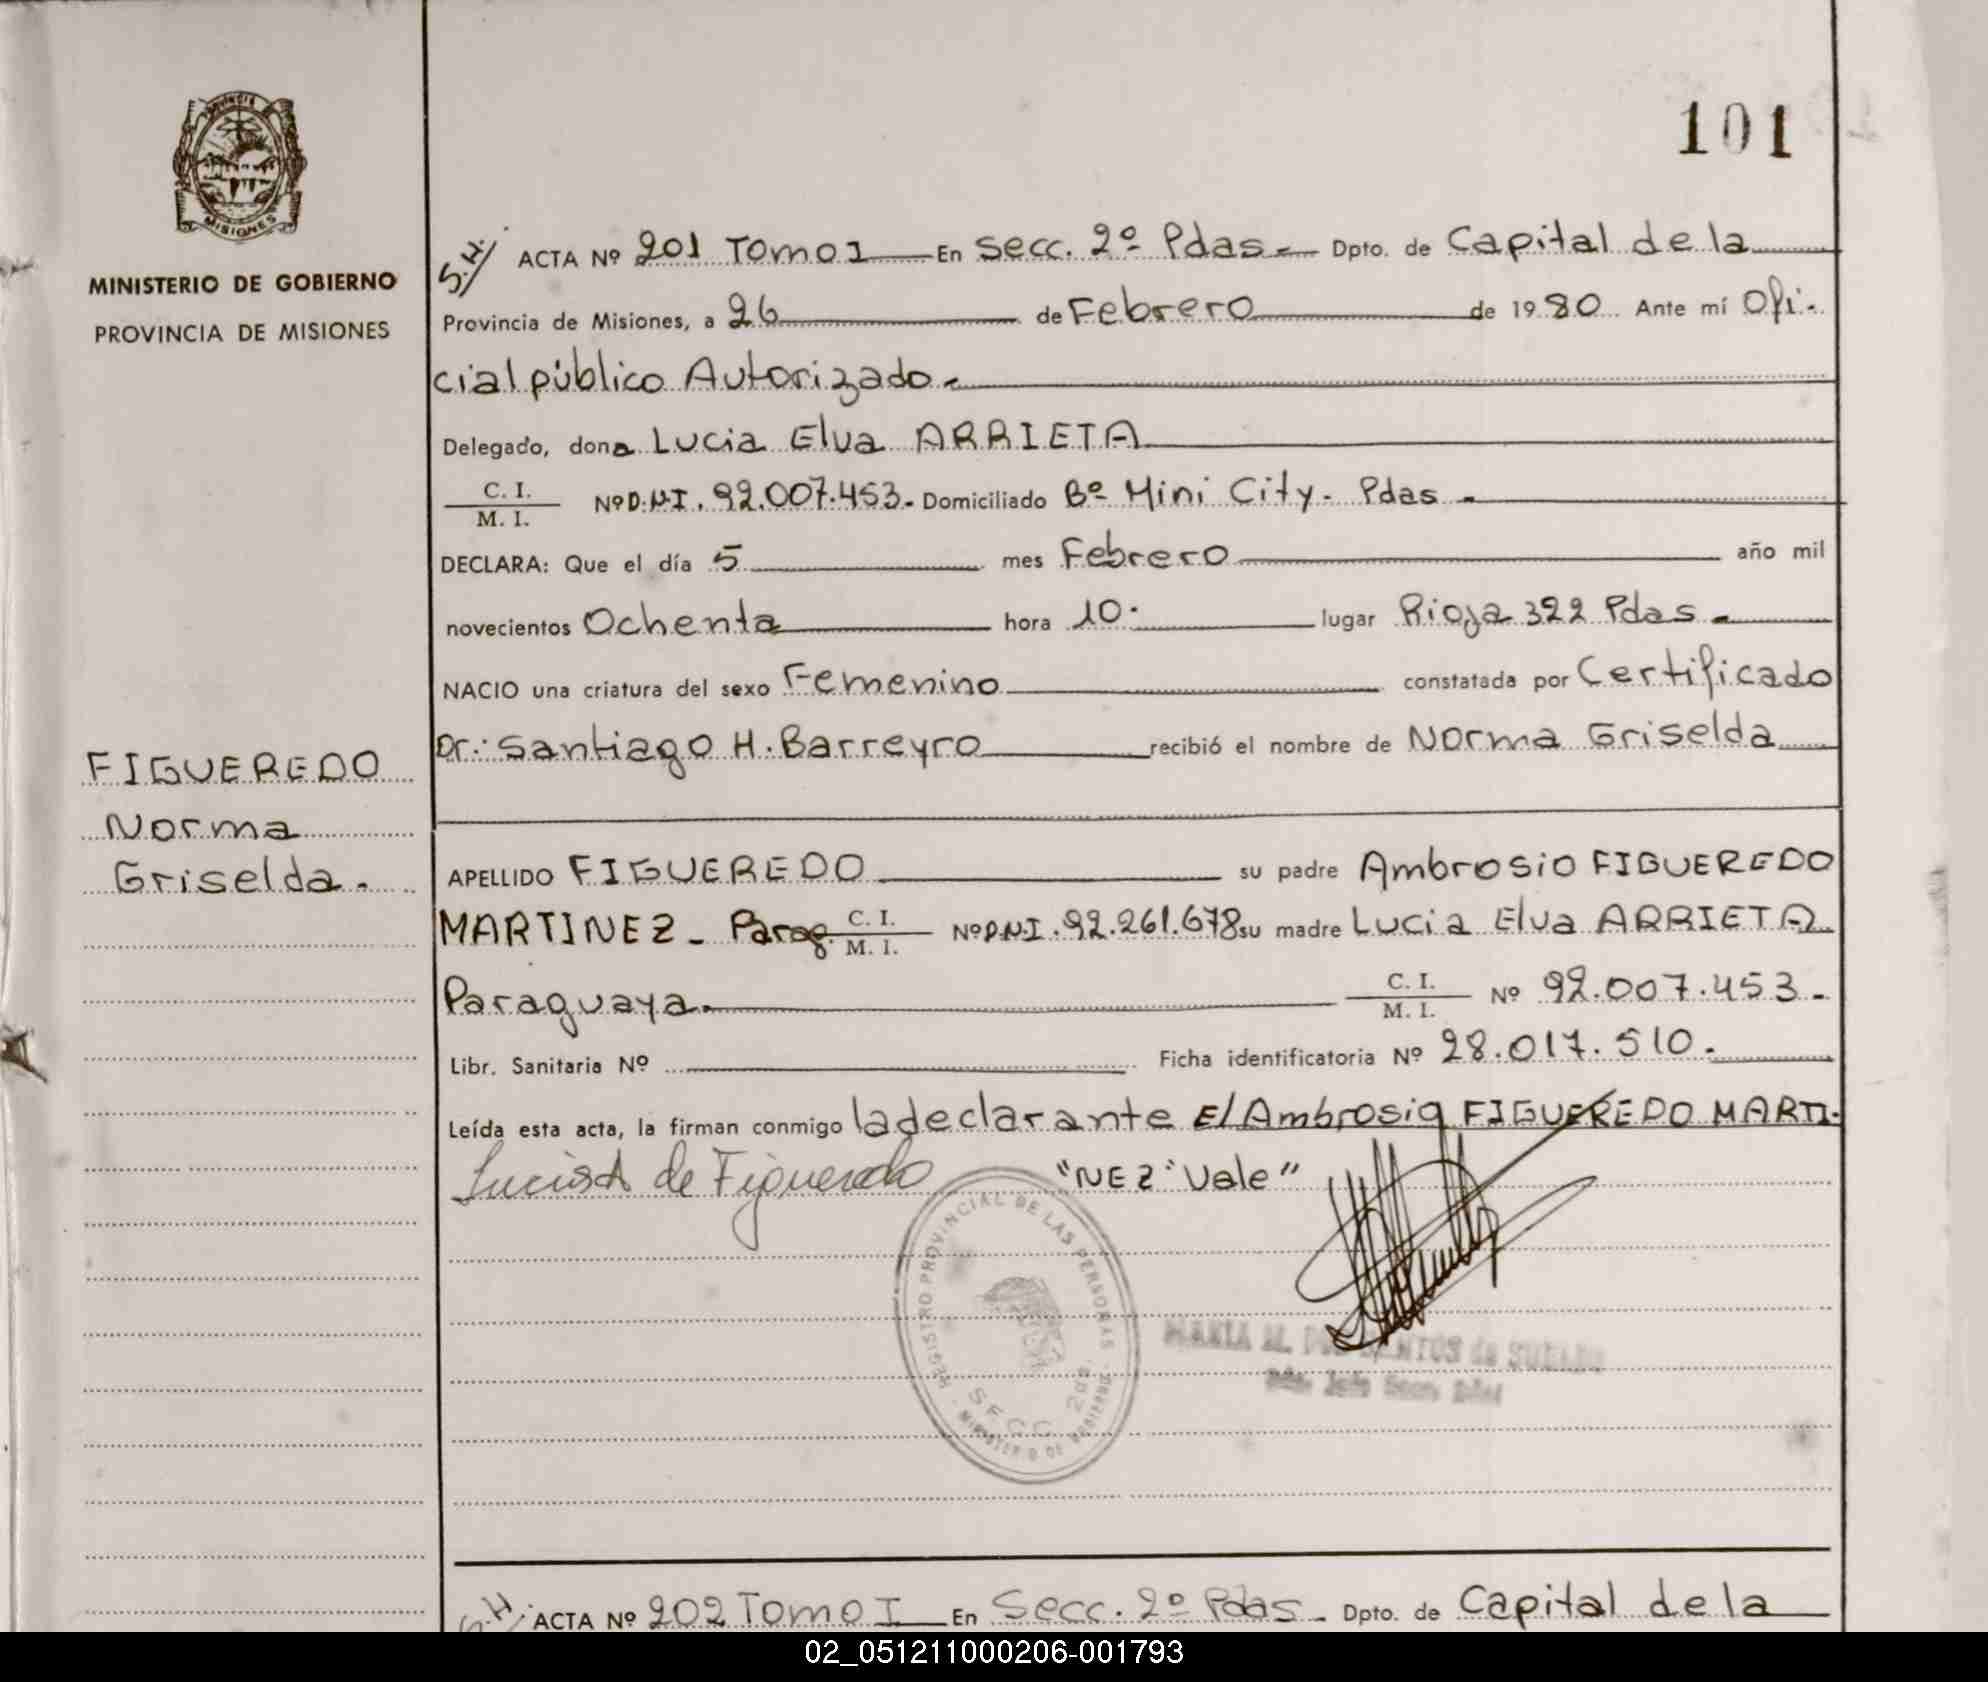 101
PROVINCIA
MISIONES
MINISTERIO DE GOBIERNO
PROVINCIA DE MISIONES
S.H/ ACTA Nº 201 Tomo I En Secc. 2º Pdas.- Dpto. de Capital de la
Provincia de Misiones, a 26 de Febrero de 1980 Ante mí Ofi-
cial público Autorizado.-
Delegado, dona Lucia Elva ARRIETA
C. I.
M. I.
Nº D.N.I. 92.007.453.- Domiciliado Bº Mini City- Pdas.-
DECLARA: Que el día 5 mes Febrero año mil
novecientos Ochenta hora 10. lugar Rioja 322 Pdas.-
NACIO una criatura del sexo Femenino constatada por Certificado
Dr.: Santiago H. Barreyro recibió el nombre de Norma Griselda
FIGUEREDO
Norma
Griselda.
APELLIDO FIGUEREDO su padre Ambrosio FIGUEREDO
MARTINEZ- Parag. C. I.
M. I.
Nº D.N.I. 92.261.678 su madre Lucia Elva ARRIETA
Paraguaya. C. I.
M. I.
Nº 92.007.453.-
Libr. Sanitaria Nº Ficha identificatoria Nº 28.017.510.-
Leída esta acta, la firman conmigo la declarante E/ Ambrosio FIGUEREDO MARTI-
Lucia A de Figueredo "NEZ" Vale"
REGISTRO PROVINCIAL DE LAS PERSONAS
SECC. 2da.
MINISTERIO DE GOBIERNO
MARIA
S.H/ ACTA Nº 202 Tomo I En Secc. 2º Pdas.- Dpto. de Capital de la
02_051211000206-001793